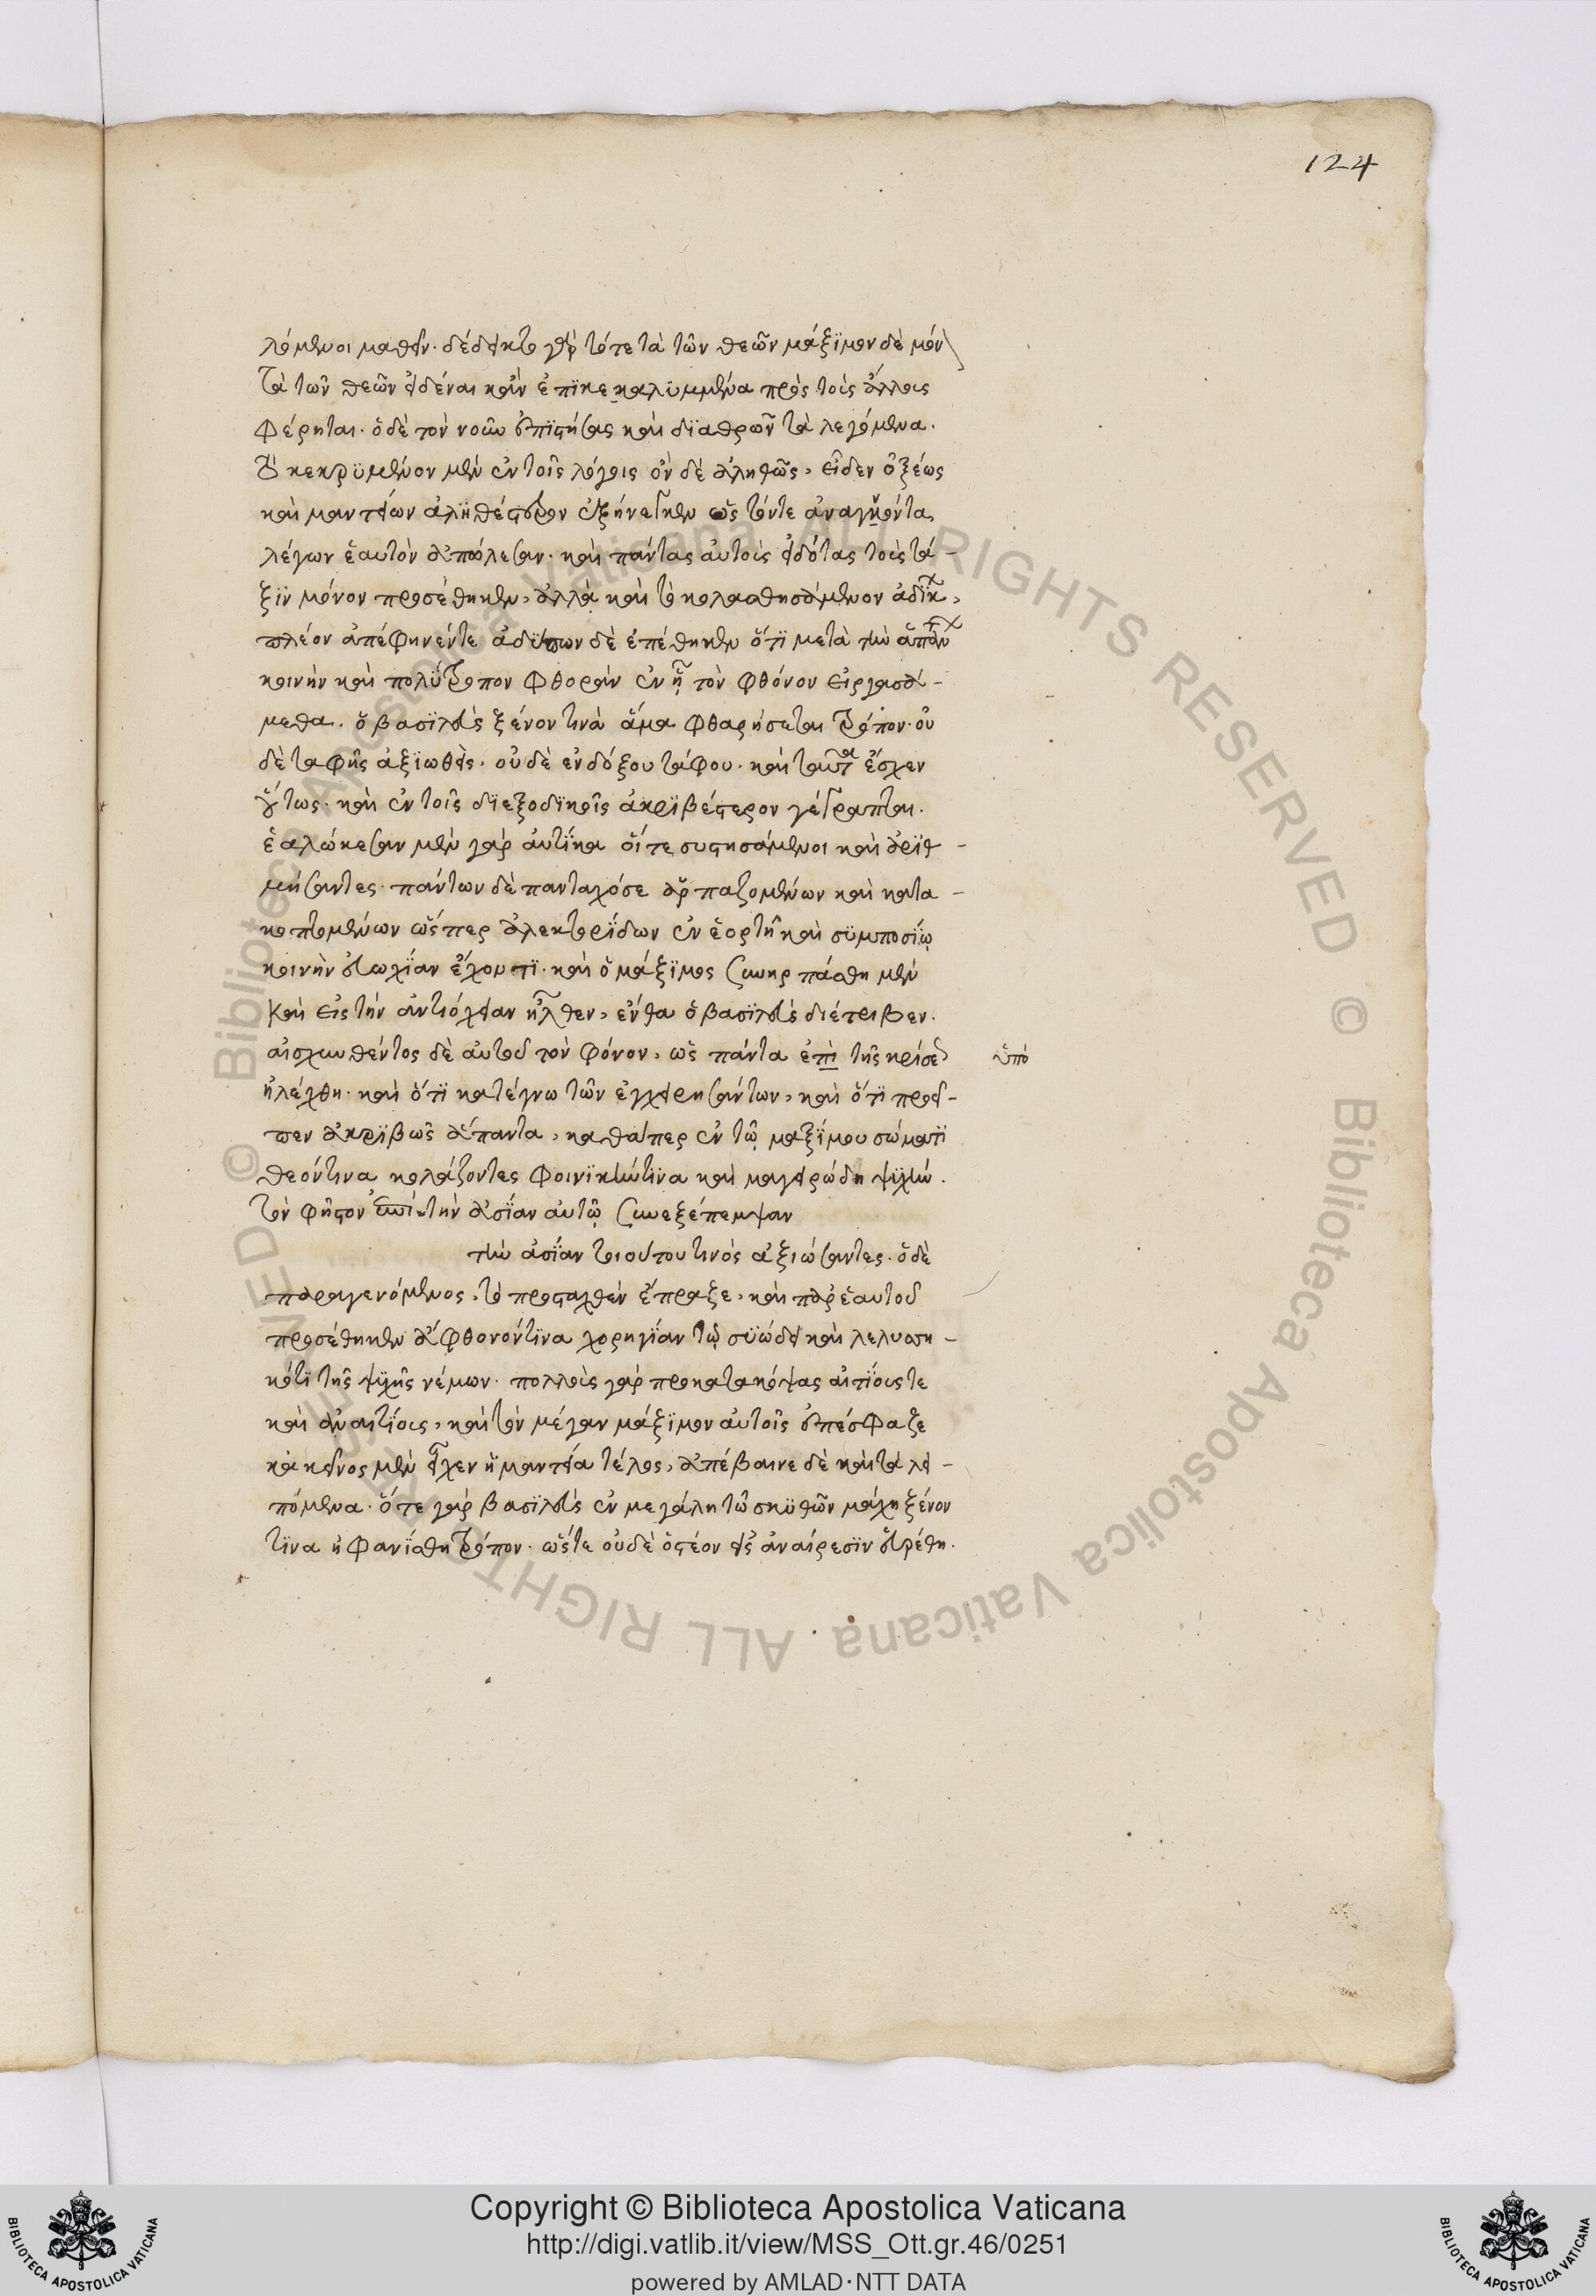 124
λόμενοι μαθεῖν· δέδεικτο γὰρ τότε τὰ τῶν θεῶν μάξιμον δὲ μόν
τὰ τῶν θεῶν εἰδέναι κἂν ἐπϊκεκαλϋμμένα πρὸς τοὺς ἄλλους
φέρηται· ὁ δὲ τὸν νοῦν ἐπϊστήσας καὶ δϊαθρῶν τὰ λεγόμενα·
τὸ κεκρϋμμένον μὲν ἐν τοῖς λόγοις ὂν δὲ ἀληθῶς, εἶδεν ὀξέως
καὶ μαντείων ἀληθέστερον ἐξήνεγκεν ὡς τόν τε ἀναγνόντα,
λέγων ἑαυτὸν ἀπώλεσαν· καὶ πάντας αὐτοὺς εἰδότας τοὺς τά-
ξϊν μόνον προσέθηκεν, ἀλλὰ καὶ τὸ κολασθησόμενον ἀδίκ,
πλέον ἀπέφηνέν τε ἀδύτων δὲ ἐπέθηκεν ὅτϊ μετὰ τὴν ἁπάν
κοινὴν καὶ πολύτροπον φθορὰν ἐν ᾗ τὸν φθόνον εἰργασό-
μεθα. ὁ βασϊλεὺς ξένον τινὰ ἅμα φθαρήσεται τρόπον· οὐ
δὲ ταφῆς ἀξϊωθεὶς· οὐδὲ ἐνδόξου τάφου· καὶ ταῦτα ἔσχεν
οὕτως· καὶ ἐν τοῖς δϊεξοδϊκοῖς ἀκρϊβέστερον γέγραπται.
ἑαλώκεσαν μὲν γὰρ αὐτίκα οἵ τε συστησάμενοι καὶ ἀρϊθ-
μήσαντες· πάντων δὲ πανταχόσε ἁρπαζομένων καὶ κατα-
κοπτομένων ὥσπερ ἀλεκτορίδων ἐν ἑορτῇ καὶ σϋμποσίῳ
κοινὴν εὐωχίαν ἔχοντϊ· καὶ ὁ μάξϊμος συνηρπάσθη μὲν
καὶ εἰς τὴν ἀντιόχειαν ἦλθεν, ἔνθα ὁ βασϊλεὺς διέτριβεν.
αἰσχυνθέντος δὲ αὐτοῦ τὸν φόνον, ὡς πάντα ἐπὶ τῆς κρίσε ὑπὸ
ἠλέγχθη· καὶ ὅτϊ κατέγνω τῶν ἐγχειρησάντων, καὶ ὅτϊ προεῖ-
πεν ἀκρϊβῶς ἅπαντα, καθάπερ ἐν τῷ μαξίμου σώματϊ
θεόν τινα κολάζοντες φοινϊκήν τϊνα καὶ μαγειρώδη ψϊχήν.
τὸν φῆστον ἐπὶ τὴν ἀσίαν αὐτῷ συνεξέπεμψαν
τὴν ἀσίαν τοιούτου τινὸς ἀξιώσαντες· ὁ δὲ
παραγενόμενος, τὸ προσταχθὲν ἔπραξε, καὶ παρ' ἑαυτοῦ
προσέθηκεν ἄφθονόν τϊνα χορηγίαν τῷ σϋώδει καὶ λελυσση-
κότϊ τῆς ψϊχῆς νέμων· πολλοὺς γὰρ προκατακόψας αἰτίους τε
καὶ ἀναιτίους, καὶ τὸν μέγαν μάξϊμον αὐτοῖς ἐπέσφαξε
κἀκεῖνος μὲν εἶχεν ἡ μαντεία τέλος, ἀπέβαινε δὲ καὶ τὰ λει-
πόμενα· ὅτε γὰρ βασϊλεὺς ἐν μεγάλη τῶ σκϋθῶν μάχη ξένον
τϊνα ἠφανίσθη τρόπον· ὥστε οὐδὲ ὀστέον εἰς ἀναίρεσϊν εὑρέθη.
Copyright © Biblioteca Apostolica Vaticana
http://digi.vatlib.it/view/MSS_Ott.gr.46/0251
powered by AMLAD·NTT DATA
BIBLIOTECA APOSTOLICA VATICANA
BIBLIOTECA APOSTOLICA VATICANA
© Biblioteca Apostolica Vaticana ALL RIGHTS RESERVED © Biblioteca Apostolica Vaticana ALL RIGHTS RESERVED